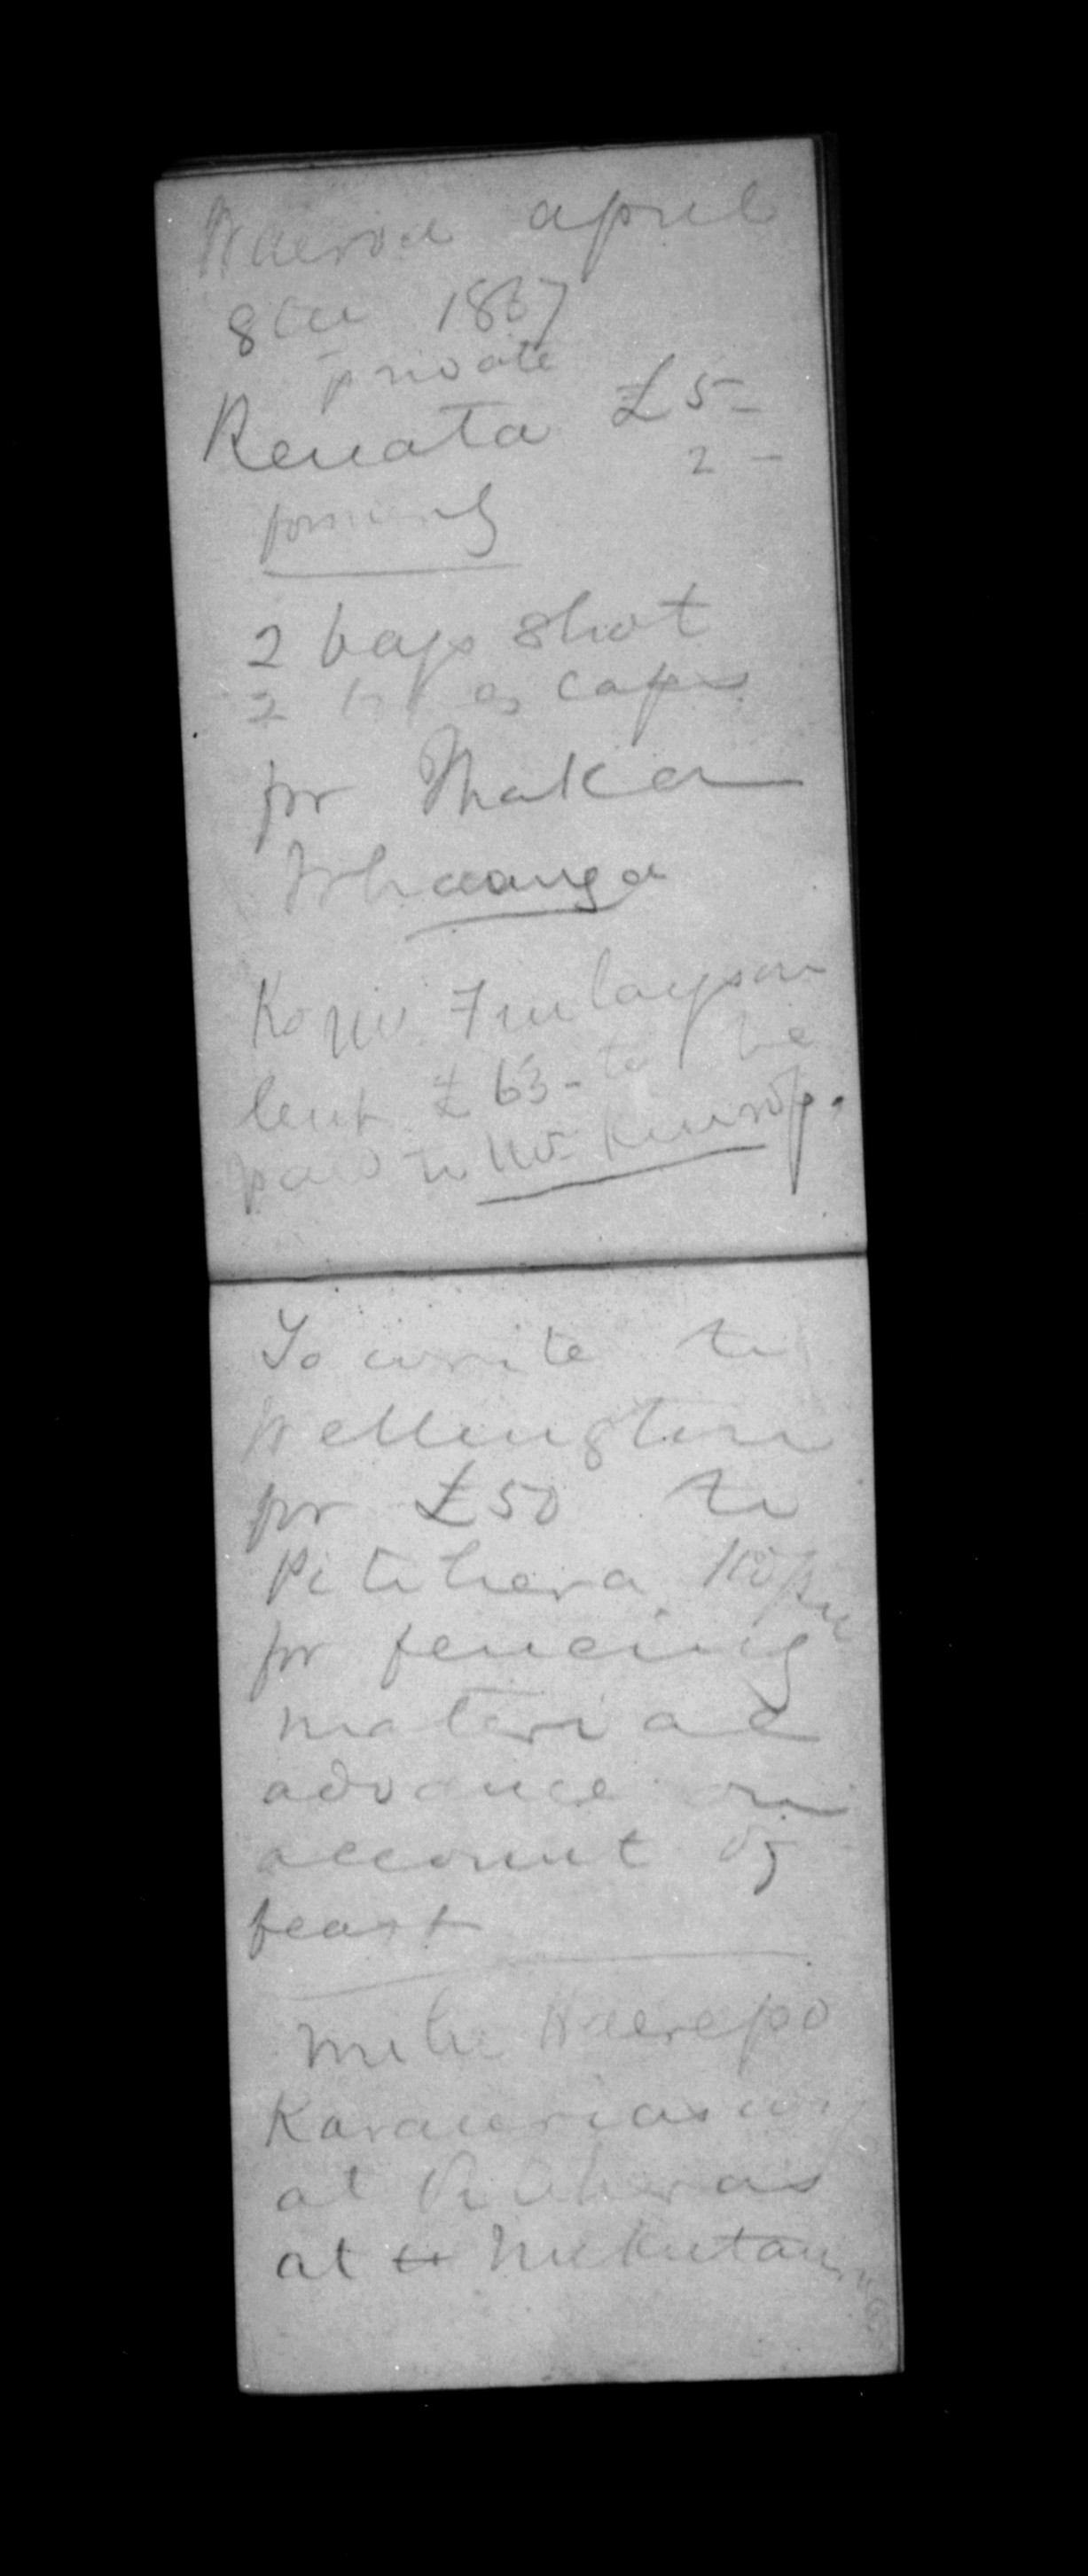 Wairoa april
8th 1867
private
Renata £5-
2 -
formerly
2 bags shot
2 caps
for Ihaka
Whaanga
Kopu Finlayson
lent £63- to be
paid to Mr Kinross.
To write to
Wellington
for £50 to
Pitihera Kopu
for fencing
material
advance on
account of
feast
Karaurias
at Pitiheras
at to